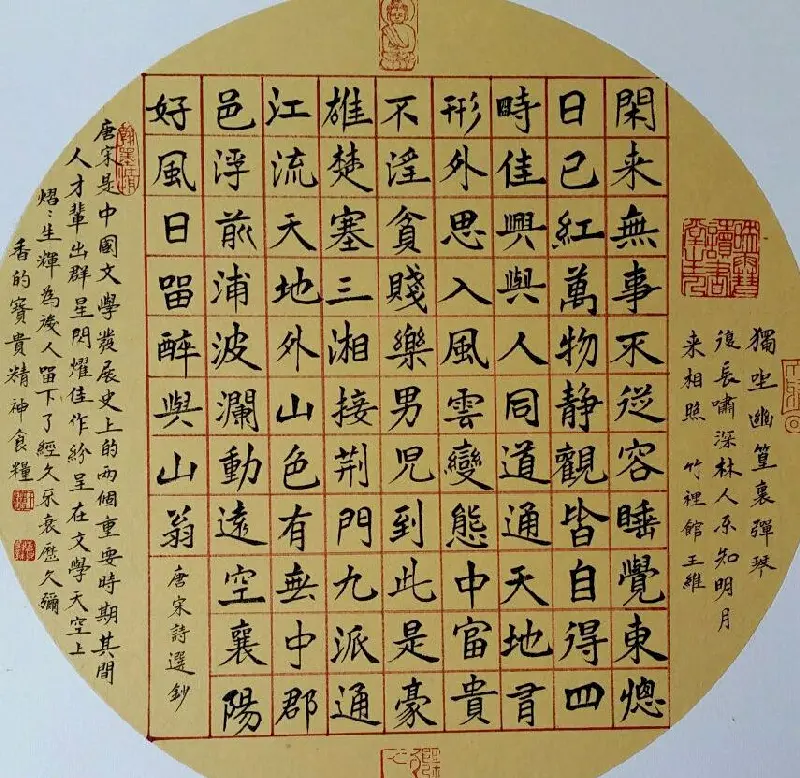 獨坐幽篁裏彈琴
復長嘯深林人不知明月
来相照 竹裡館王維
閑来無事不從容睡覺東牕
日已紅萬物静觀皆自得四
時佳興與人同道通天地有
形外思入風雲變態中富貴
不淫貧賤樂男兒到此是豪
雄楚塞三湘接荆門九派通
江流天地外山色有無中郡
邑浮前浦波瀾動遠空襄陽
好風日留醉與山翁
唐宋詩選鈔
翰墨情
唐宋是中國文學發展史上的兩個重要時期其間
人才輩出群星閃耀佳作紛呈在文學天空上
熠〻生輝為後人留下了經久不衰歷久彌
香的寶貴精神食糧